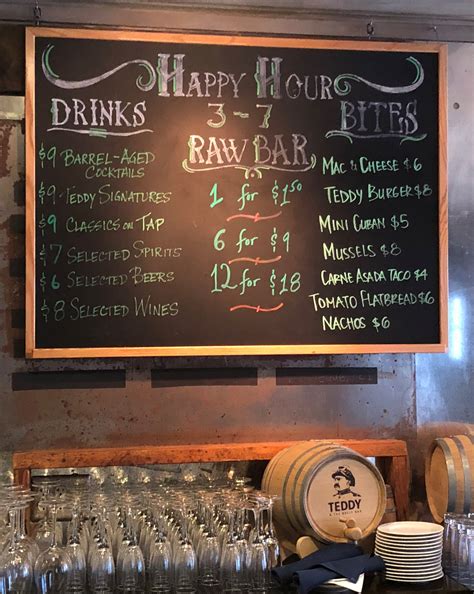 Happy Hour
3 - 7
DRINKS
$9 Barrel-Aged
Cocktails
$9 Teddy Signatures
$9 Classics on Tap
$7 Selected Spirits
$6 Selected Beers
$8 Selected Wines
RAW BAR
1 for $1.50
6 for $9
12 for $18
BITES
Mac & Cheese $6
Teddy Burger $8
Mini Cuban $5
Mussels $8
Carne Asada Taco $4
Tomato Flatbread $6
Nachos $6
TEDDY
& THE BULLY BAR